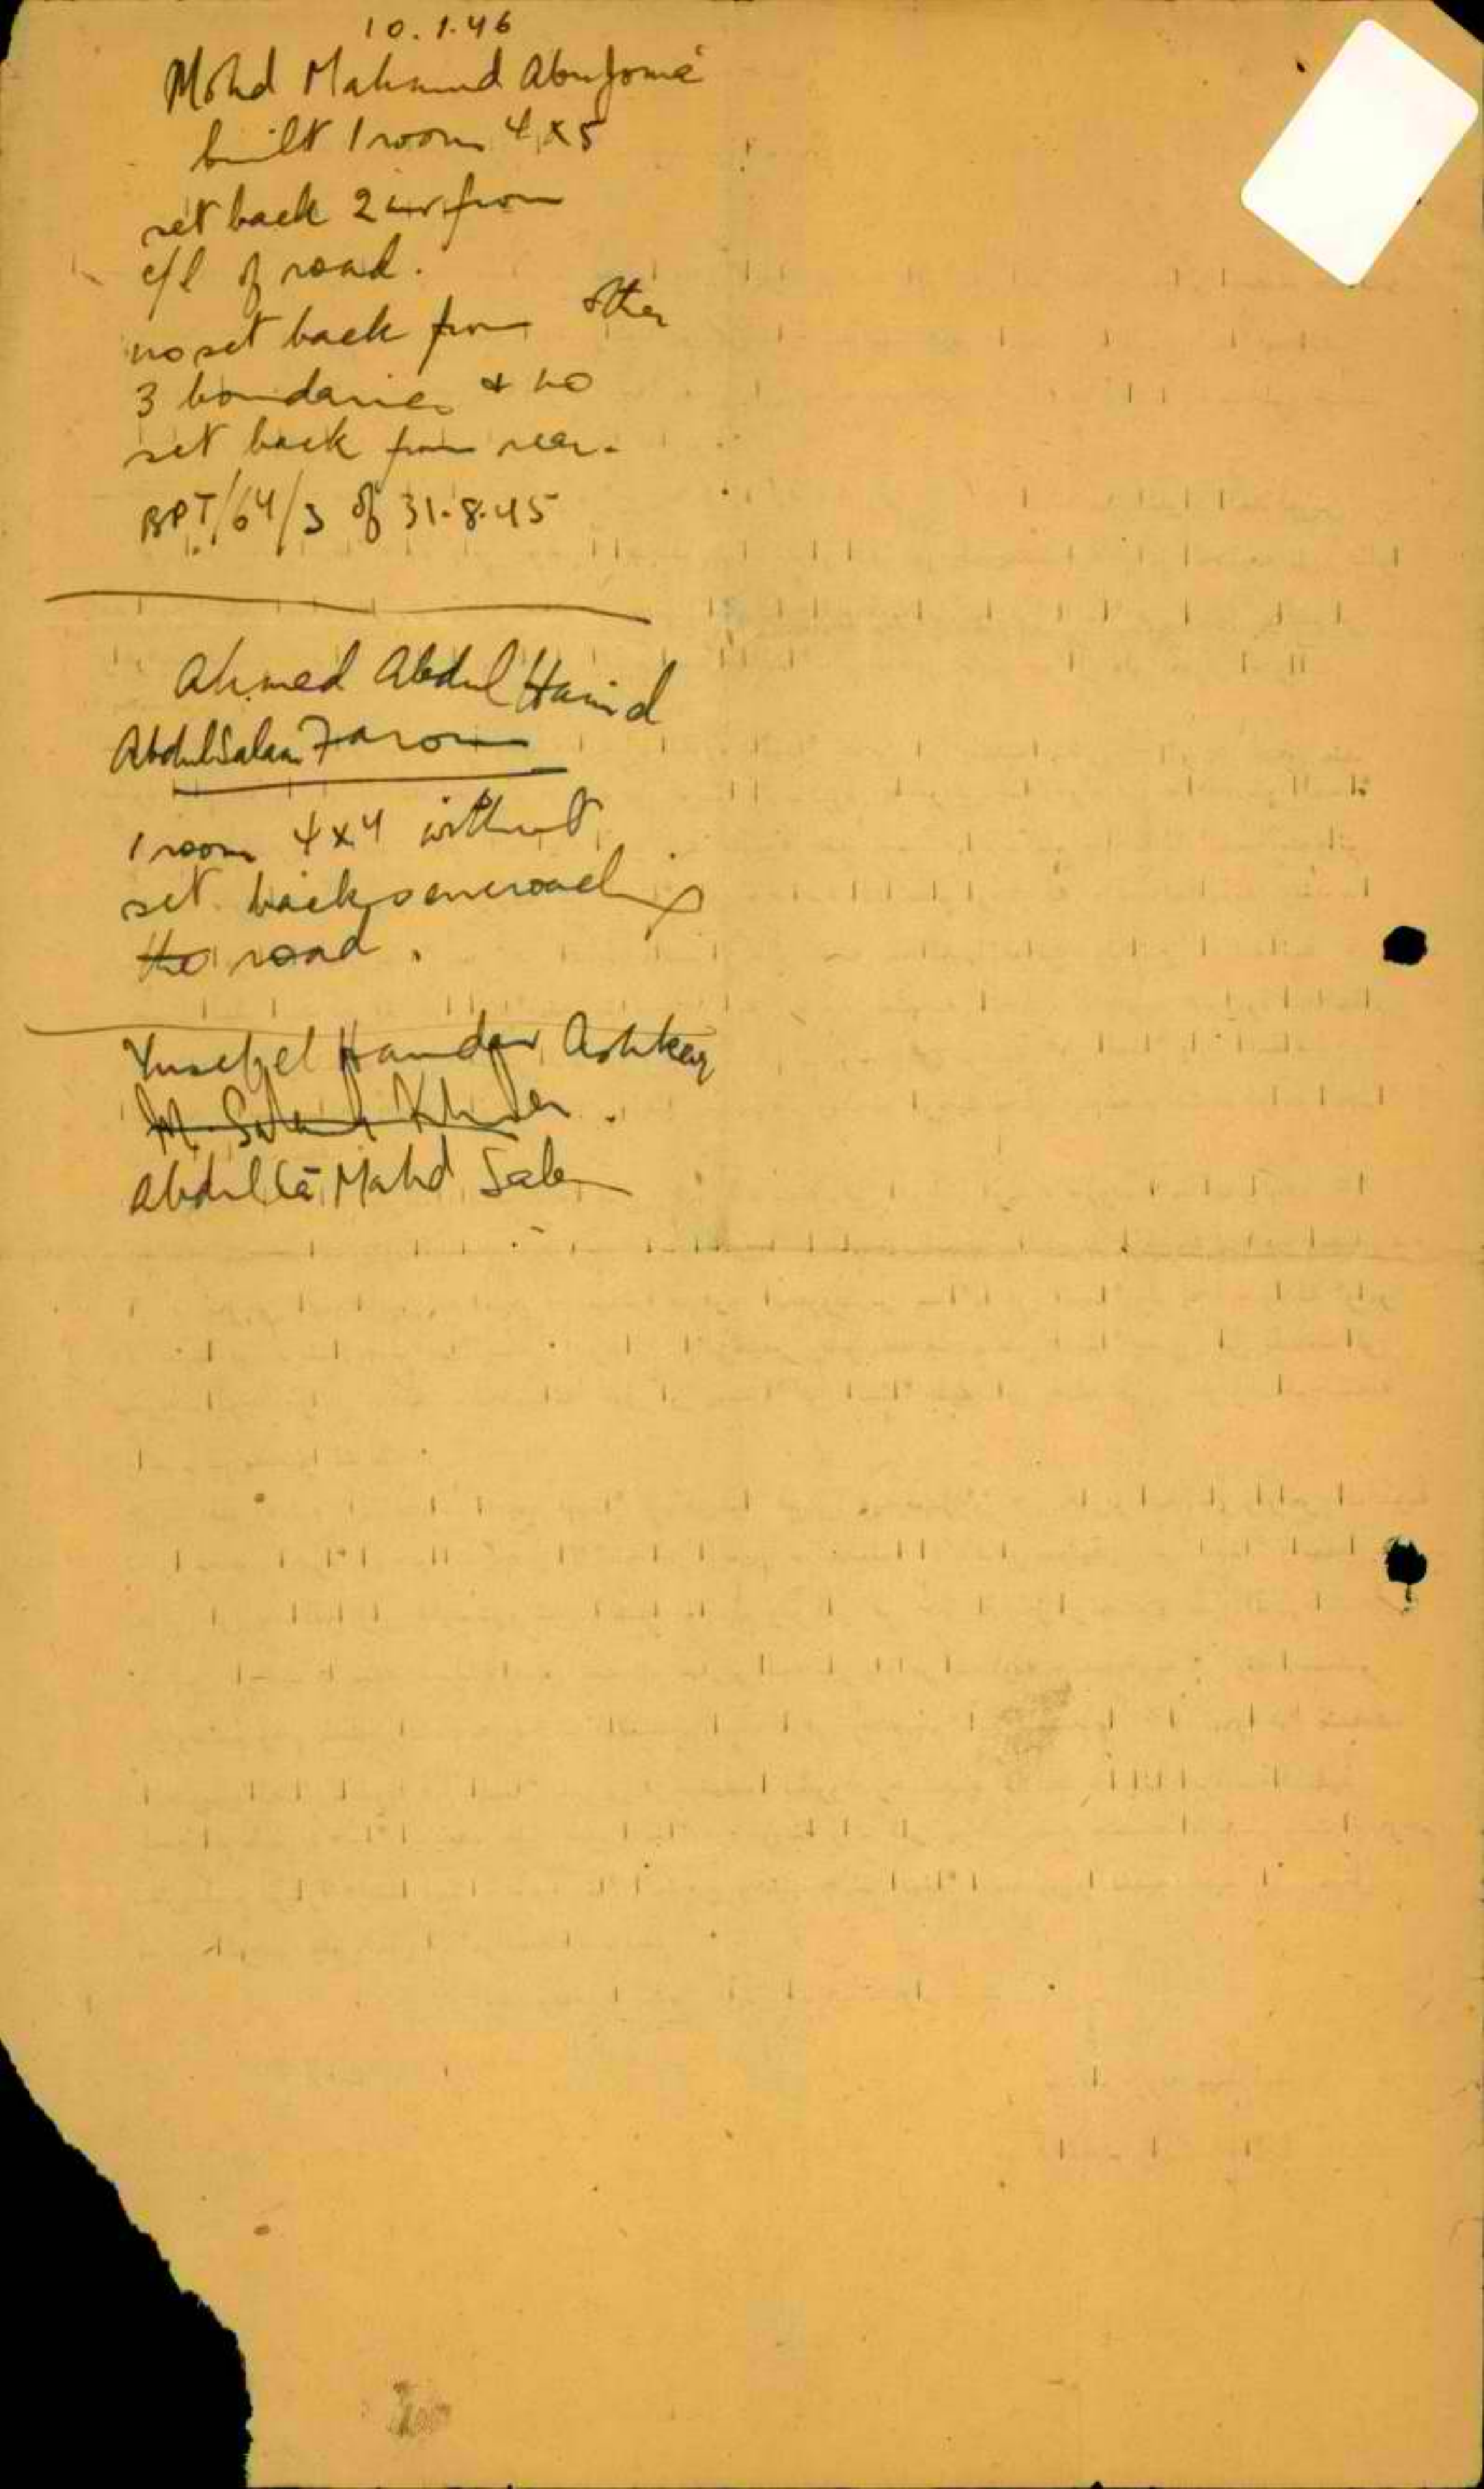 10.1.46
Mohd Mahmud Abu Joma'
built 1 room 4x5
set back 2 from
c/l of road.
no set back from other
3 boundaries & no
set back from rear.
BPT/64/3 of 31.8.45
Ahmed Abdul Hamid
Abdul Salam
1 room 4x4 without
set back encroaching
the road.
Yusef el Hamdan Ashkar
M. Saleh Khder.
Abdulla Mahd Salem